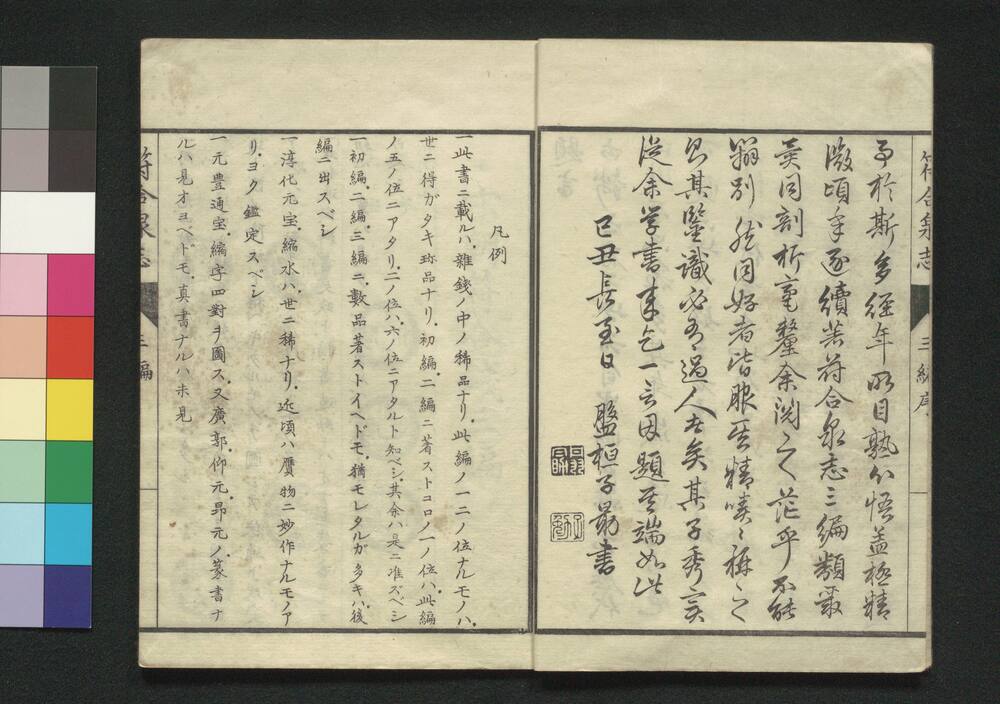 符合泉志 三編序
予於斯多經年所目熟心悟盖極精
微頃年逐續著符合泉志三編類聚
異同剖析毫釐余閲之茫乎不能
辨別然同好者皆眼其精嘖々稱之
則其鑒識必有過人者矣其子秀実
從余学書來乞一言因題其端如此
己丑長至日 盤桓子 書
凡例
一此書ニ載ルハ、雜錢ノ中ノ稀品ナリ、此編ノ一二ノ位ナルモノハ、
世ニ得ガタキ珎品ナリ、初編、二編ニ著ストコロノ一ノ位ハ、此編
ノ五ノ位ニアタリ、二ノ位ハ、六ノ位ニアタルト知ベシ、其余ハ是ニ准ズベシ
一初編、二編、三編ニ、數品著ストイヘドモ、猶モレタルガ多キハ、後
編ニ出スベシ
一淳化元宝、縮水ハ、世ニ稀ナリ、近頃ハ贋物ニ妙作ナルモノア
リ、ヨク鑑定スベシ
一元豊通宝、縮字四對ヲ圖ス、又廣郭、仰元、昂元ノ、篆書ナ
ルハ見オヨベトモ、真書ナルハ未見
符合泉志 三編